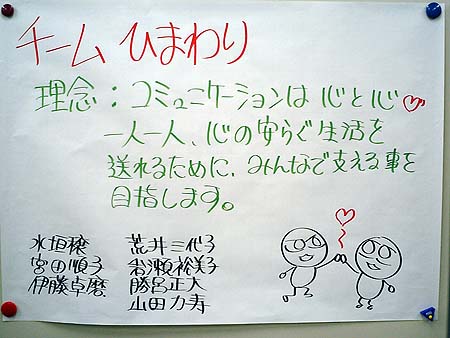 チーム ひまわり
理念：コミュニケーションは 心と心♡
一人一人、心の安らぐ生活を
送れるために、みんなで支える事を
目指します。
水垣穣 荒井三代子
宮田順子 岩瀬裕美子
伊藤卓磨 勝呂正大
山田力寿